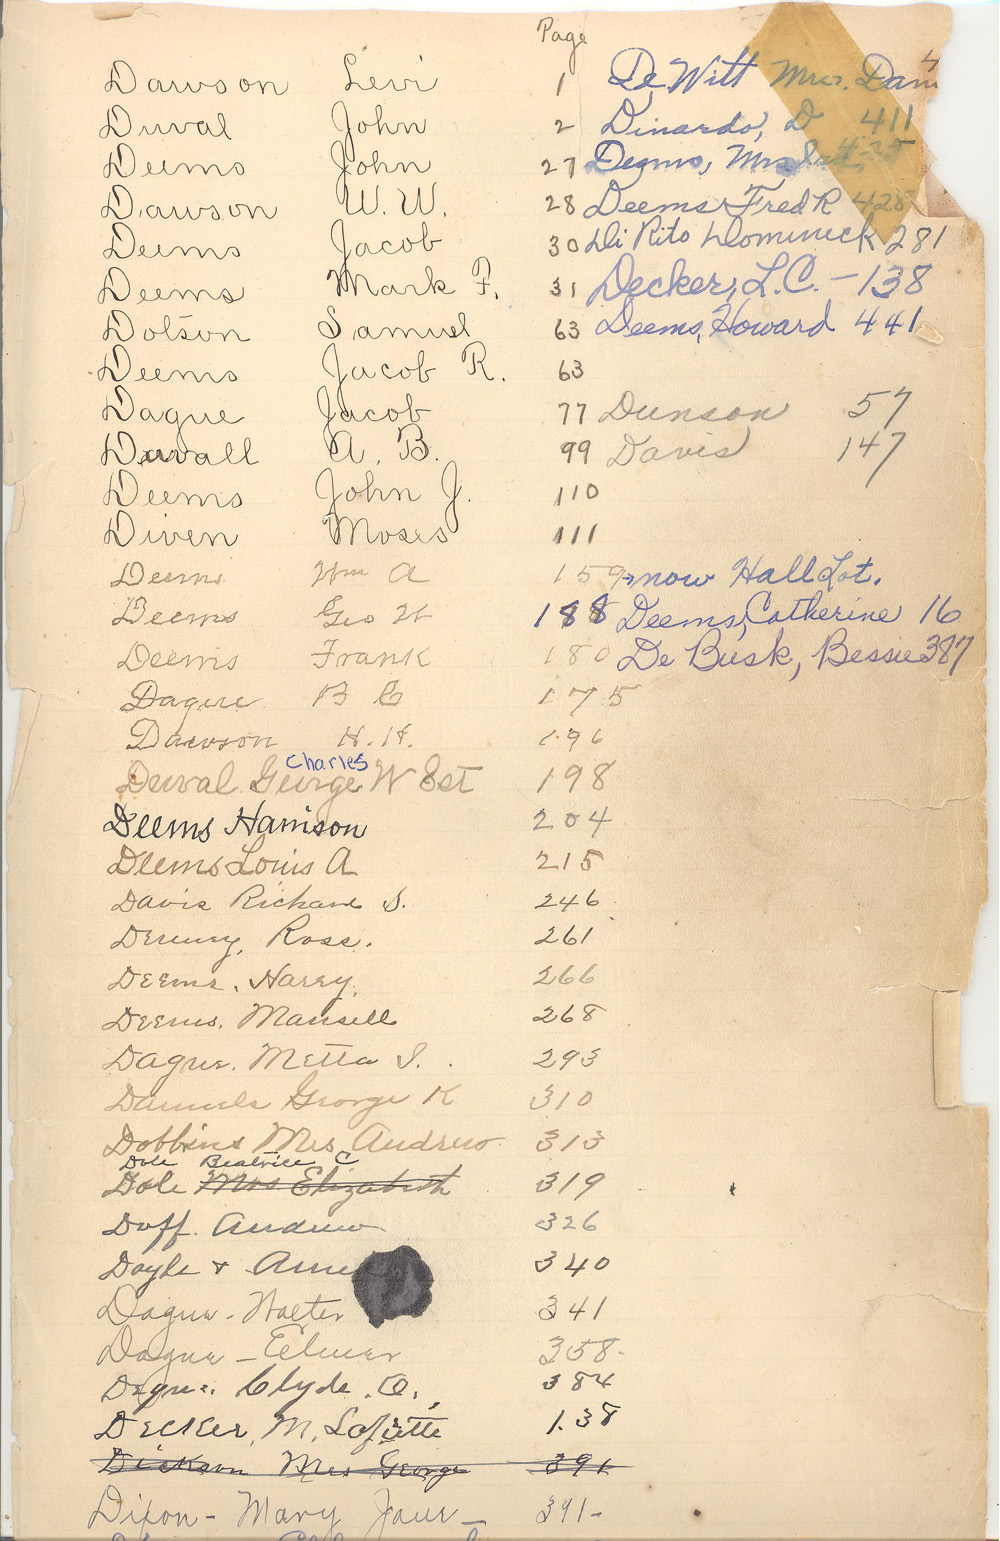 Page
Dawson Levi 1 De Witt Mrs. Dani 4
Duval John 2 Dinardo, D 411
Deems John 27 Deems, Mrs 425
Dawson W. W. 28 Deems Fred R 428
Deems Jacob 30 Di Rito Domineck 281
Deems Mark F. 31 Decker, L. C. - 138
Dotson Samuel 63 Deems, Howard 441
Deems Jacob R. 63
Dague Jacob 77 Dunson 57
Duvall A. B. 99 Davis 147
Deems John J. 110
Diven Moses 111
Deems Wm A 159 now Hall Lot.
Deems Geo W 188 Deems, Catherine 16
Deems Frank 180 De Busk, Bessie 387
Dague B C 175
Dawson H. H. 196
Charles
Duval George W Est 198
Deems Harrison 204
Deems Louis A 215
Davis Richard S. 246
Ross. 261
Deems, Harry. 266
Deems. Mansell 268
Dague. Metta S. 293
Daniels George K 310
Dobbins Mrs Andrew 313
Dole Beatrice C
Dole Mrs Elizabeth 319
Duff. Andrew 326
Doyle + 340
Dague - Walter 341
Dague - Elmer 358-
Dague. Clyde. O. 384
Decker, M. Lafette 138
Dickson Mrs George 391
Dixon - Mary Jane - 391-